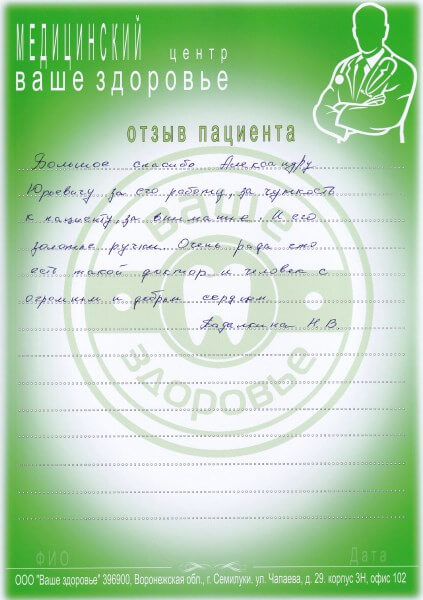 МЕДИЦИНСКИЙ центр
ваше здоровье
отзыв пациента
Большое спасибо Александру
Юрьевичу за его работу, за чуткость
к пациенту, за внимание. И его
золотые ручки. Очень рада что
есть такой доктор и человек с
огромным и добрым сердцем.
Н.В.
ВАШЕ
ЗДОРОВЬЕ
ФИО Дата
ООО "Ваше здоровье" 396900, Воронежская обл., г. Семилуки. ул. Чапаева, д. 29. корпус 3Н, офис 102